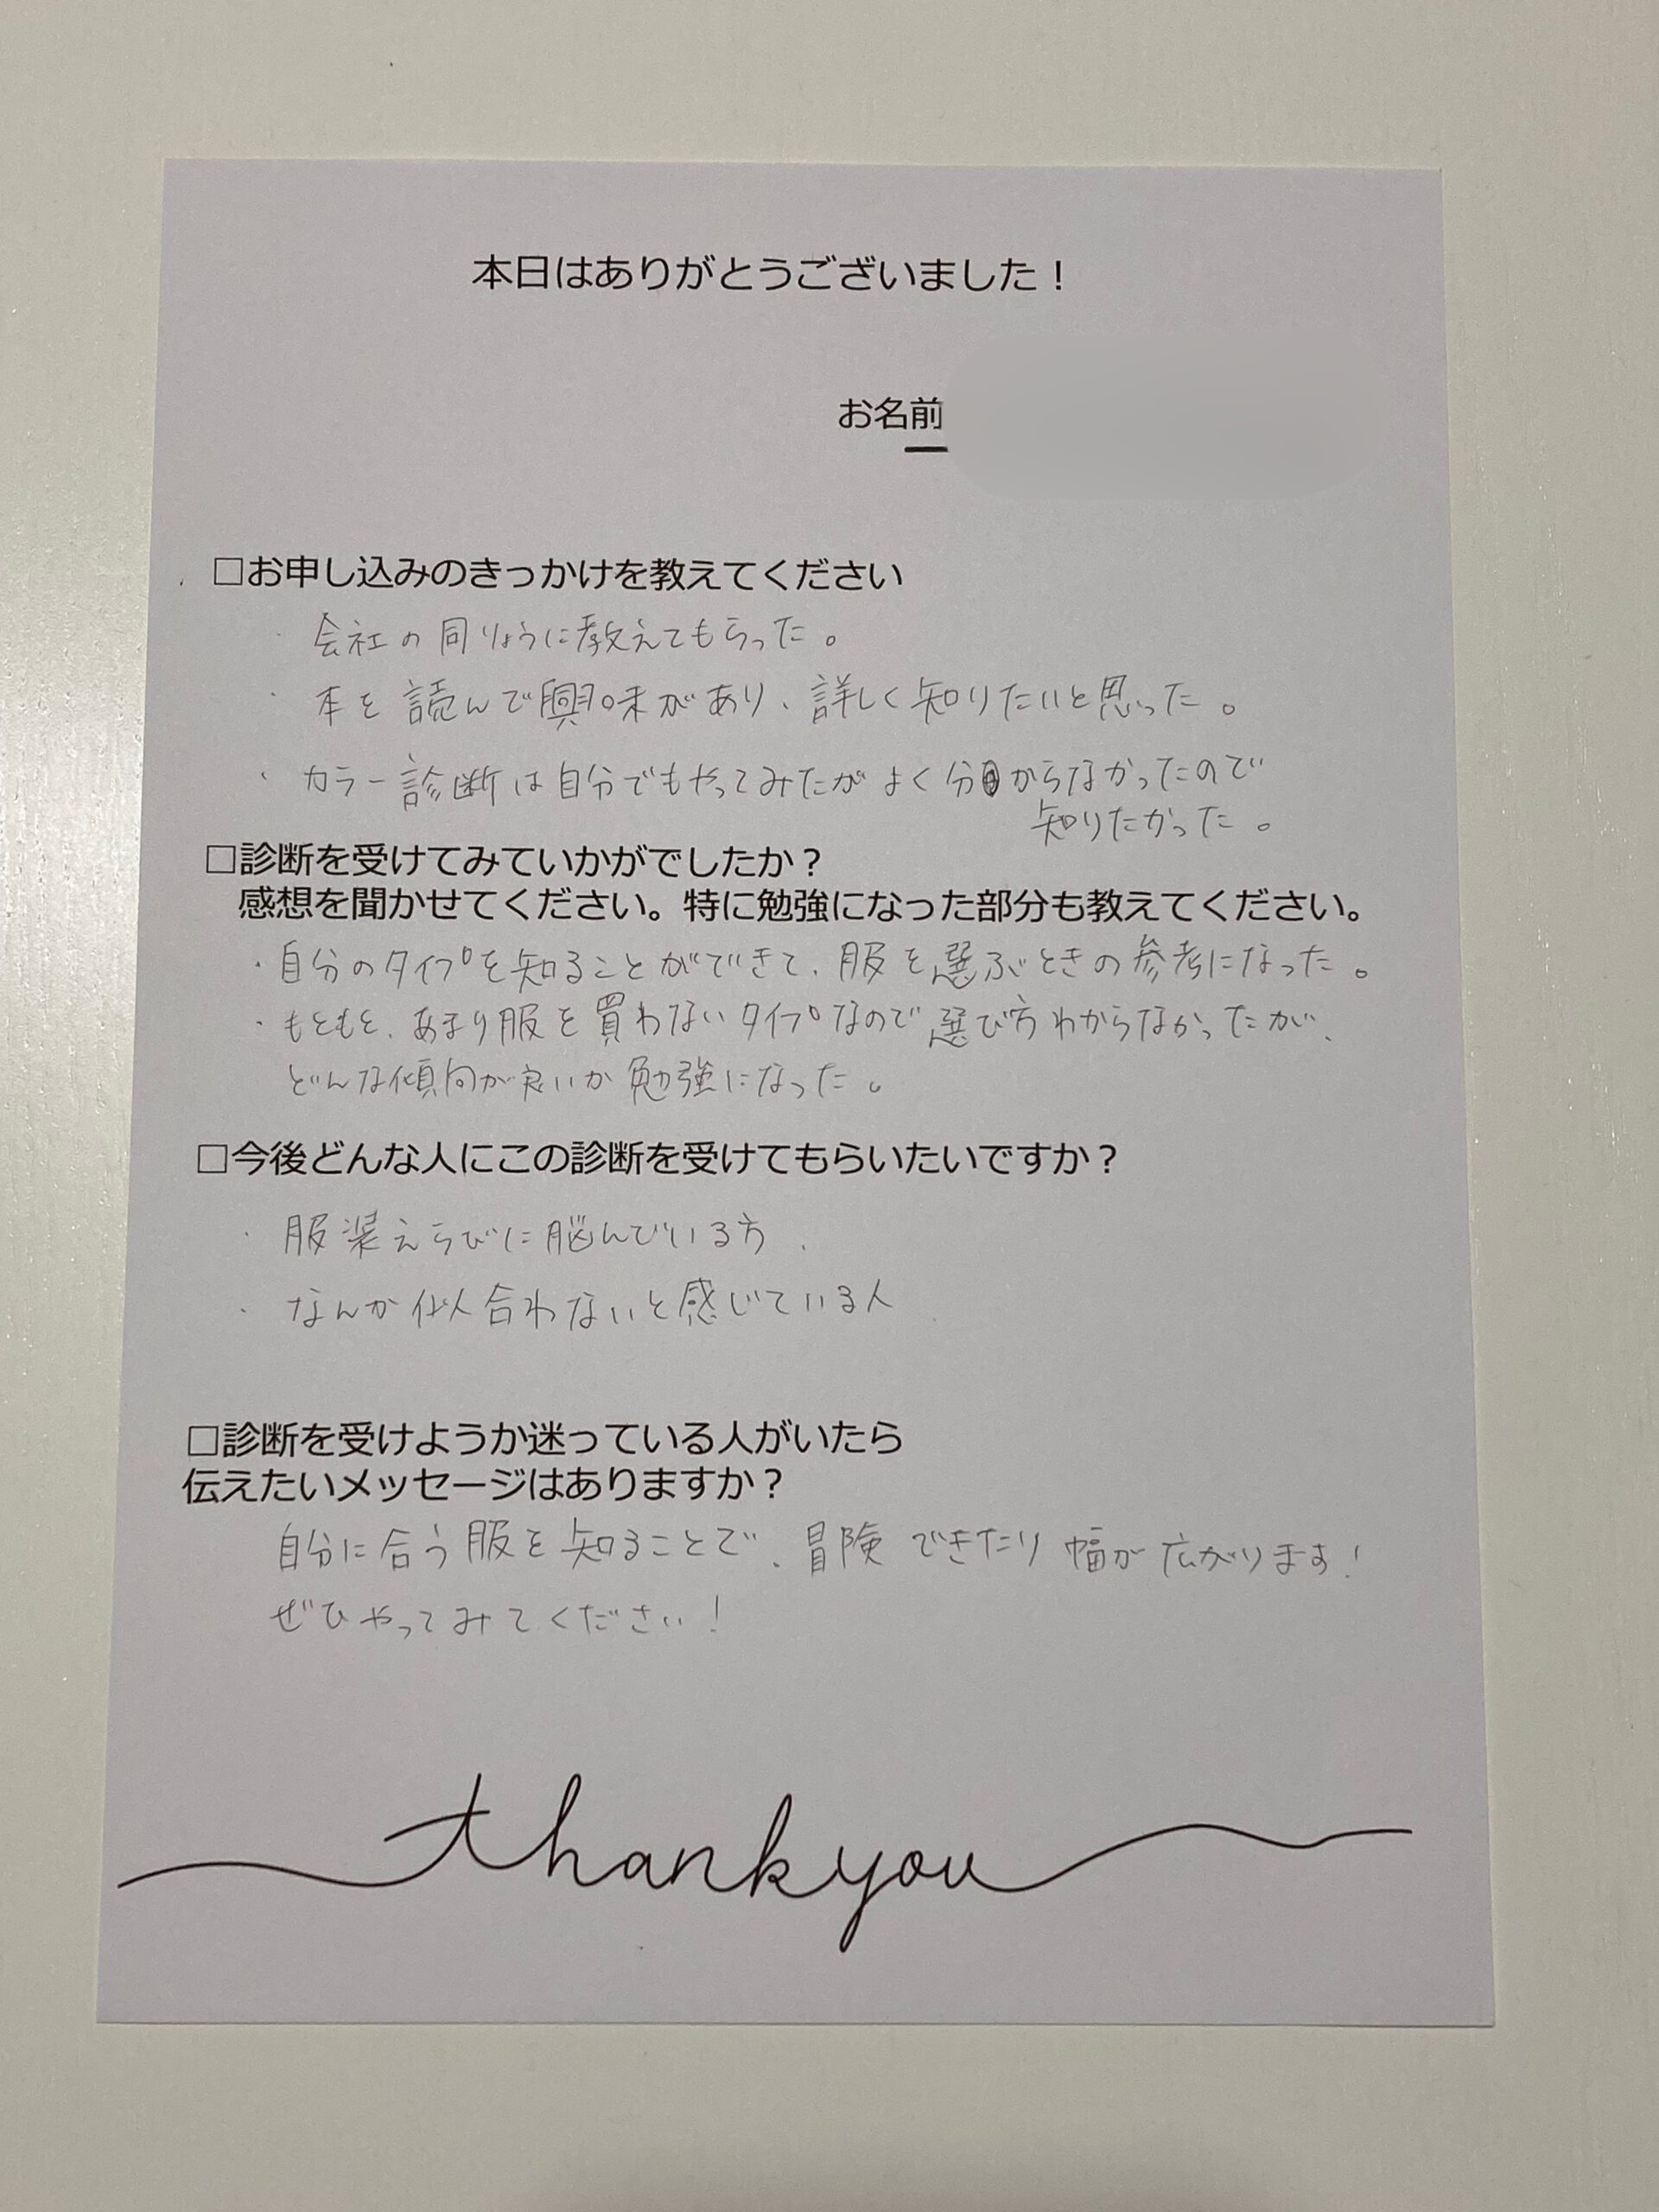 本日はありがとうございました！
お名前
□お申し込みのきっかけを教えてください
・会社の同りょうに教えてもらった。
・本を読んで興味があり、詳しく知りたいと思った。
・カラー診断は自分でもやってみたがよく分からなかったので
知りたかった。
□診断を受けてみていかがでしたか？
感想を聞かせてください。特に勉強になった部分も教えてください。
・自分のタイプを知ることができて、服を選ぶときの参考になった。
・もともと、あまり服を買わないタイプなので選び方わからなかったが、
どんな傾向が良いか勉強になった。
□今後どんな人にこの診断を受けてもらいたいですか？
・服装えらびに脳んでいる方、
・なんか似合わないと感じている人
□診断を受けようか迷っている人がいたら
伝えたいメッセージはありますか？
自分に合う服を知ることで、冒険できたり幅が広がります！
ぜひやってみてください！
thank you